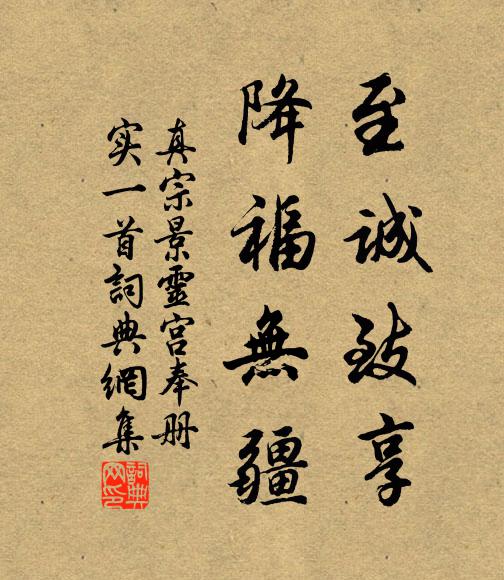 至誠致享
降福無疆
真宗景靈宫奉册
实一首詞典網集
詞典网印